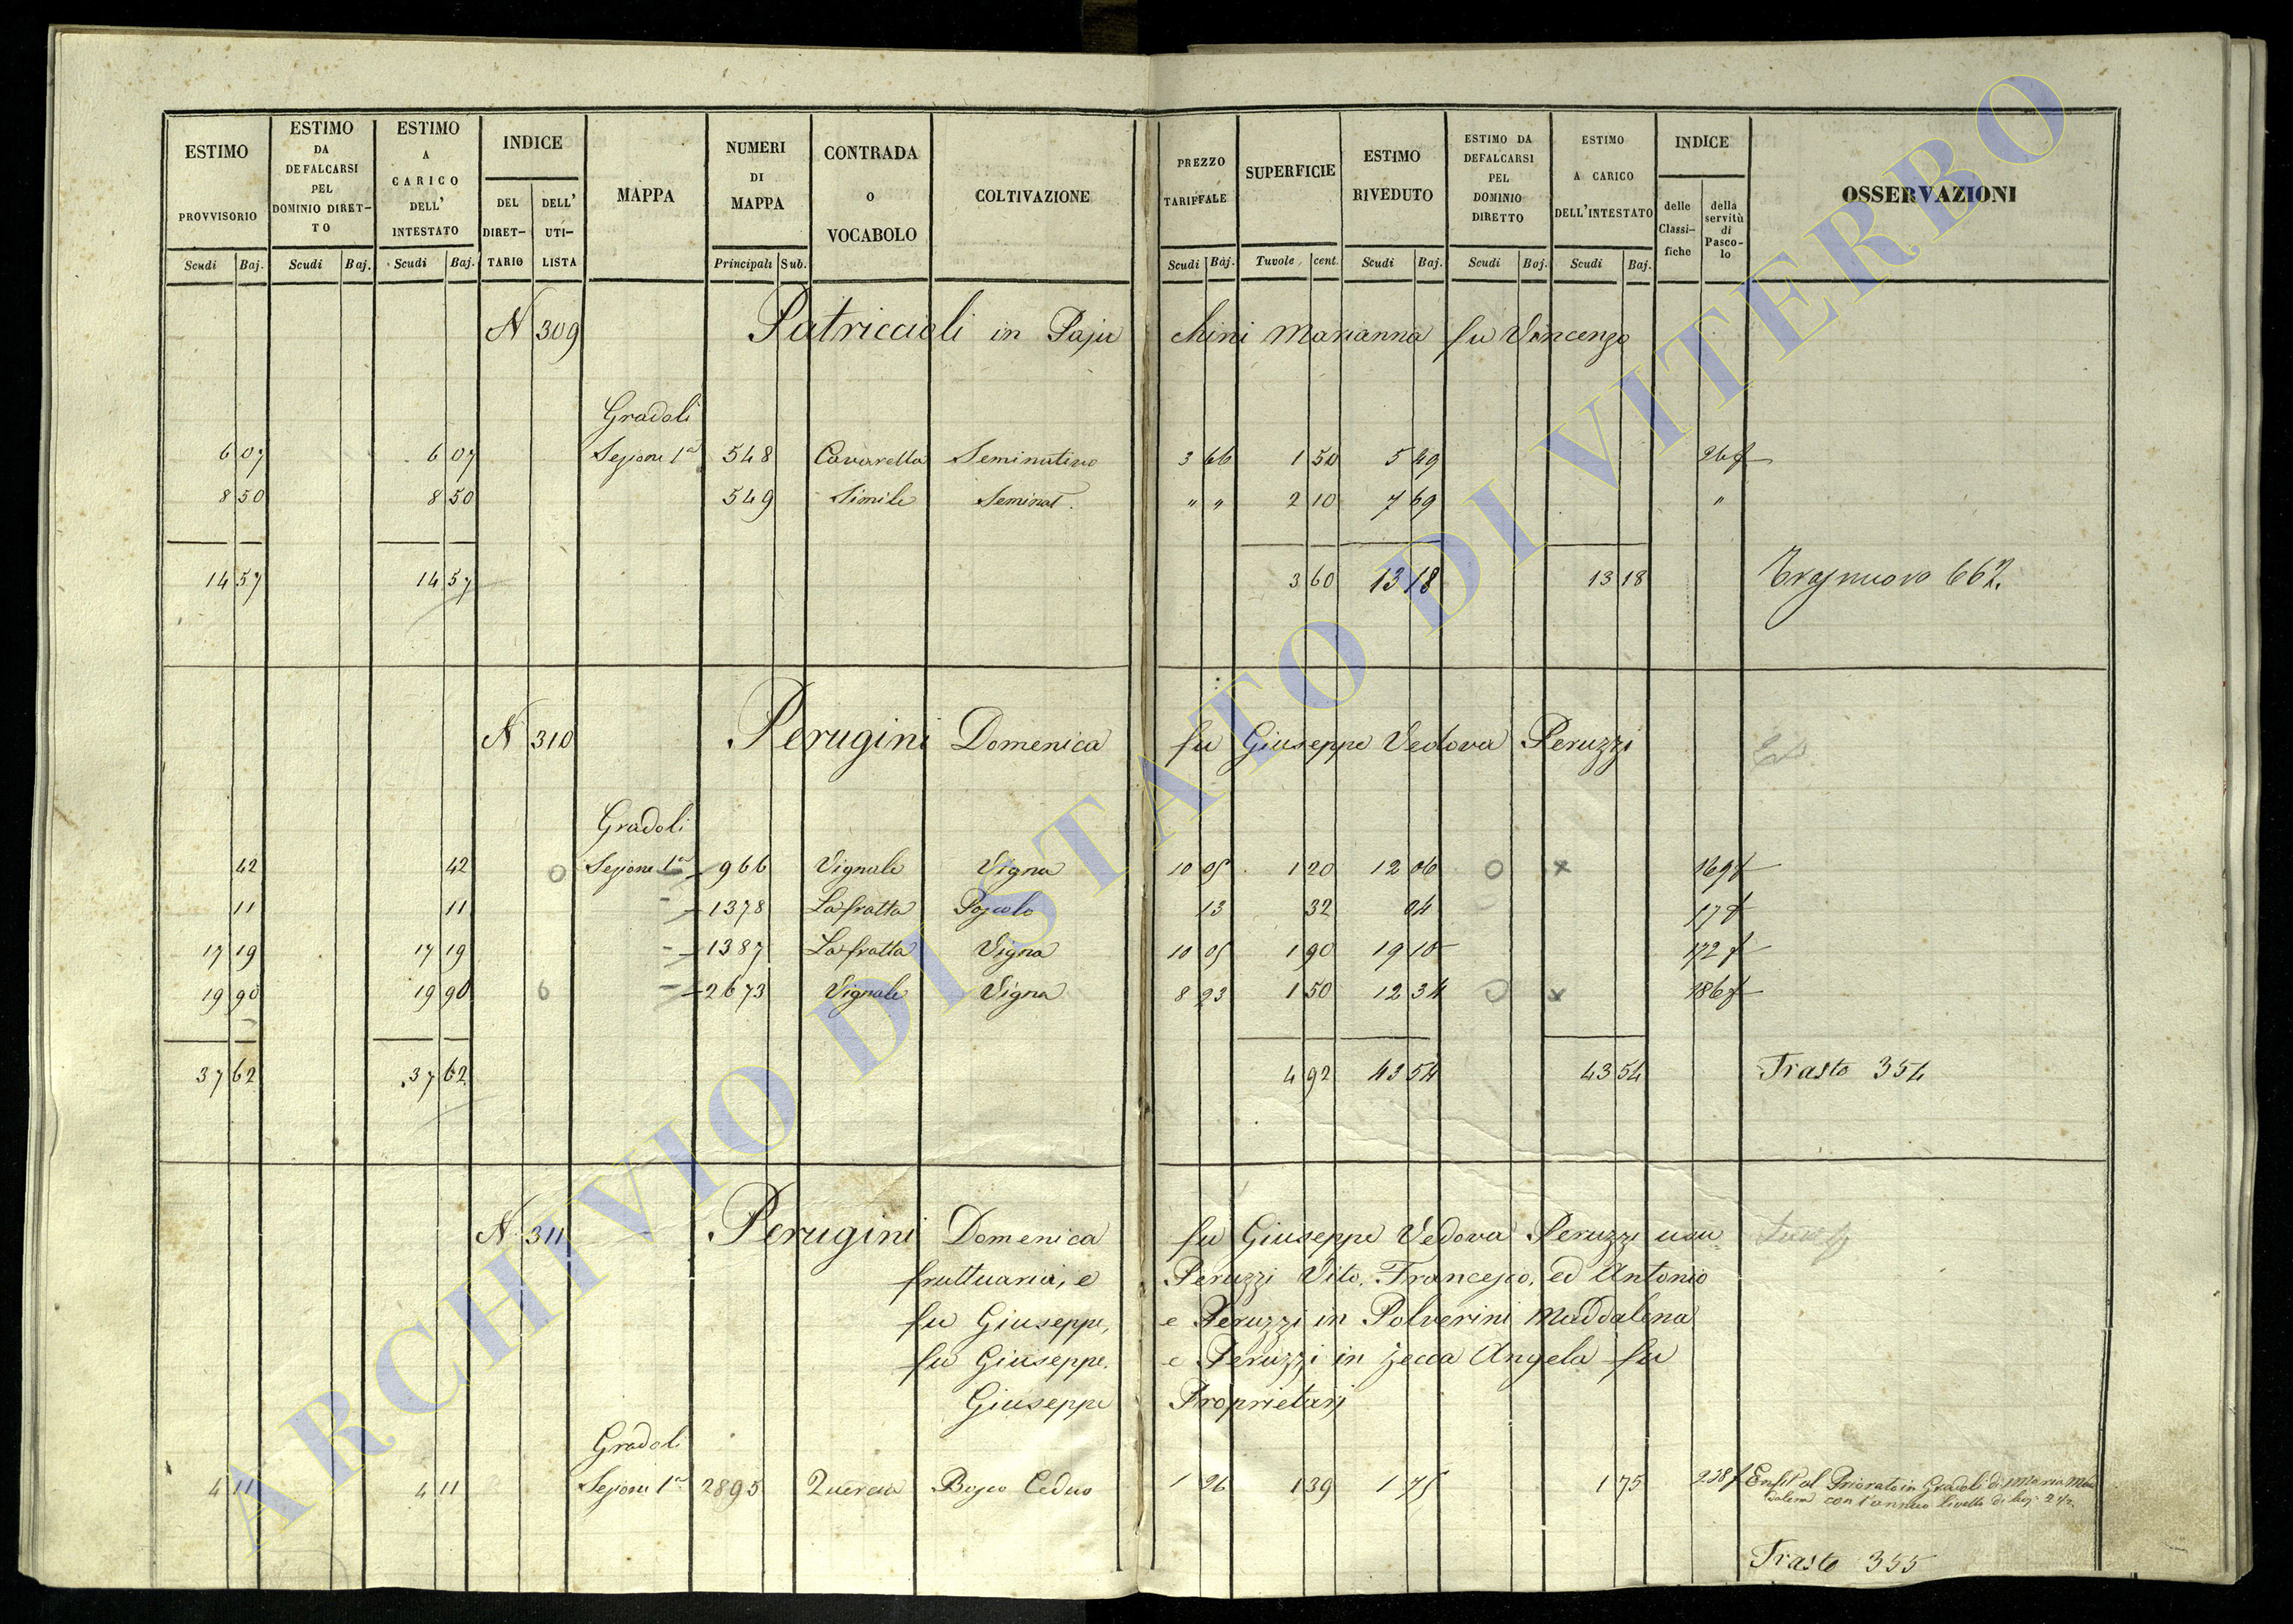 ESTIMO PROVVISORIO Scudi Baj.
ESTIMO DA DEFALCARSI PEL DOMINIO DIRET-TO Scudi Baj.
ESTIMO A CARICO DELL' INTESTATO Scudi Baj.
INDICE DEL DIRET-TARIO DELL' UTI-LISTA
MAPPA
NUMERI DI MAPPA Principali Sub.
CONTRADA O VOCABOLO
COLTIVAZIONE
PREZZO TARIFFALE Scudi Baj.
SUPERFICIE Tuvole cent.
ESTIMO RIVEDUTO Scudi Baj.
ESTIMO DA DEFALCARSI PEL DOMINIO DIRETTO Scudi Baj.
ESTIMO A CARICO DELL'INTESTATO Scudi Baj.
INDICE delle Classi-fiche della servitù di Pasco-lo
OSSERVAZIONI
N 309 Patriccioli in Paju chini Marianna fu Vincenzo
Gradoli
6 07 6 07 Sezione 1a 548 Cavarella Seminativo 3 66 1 50 5 49 26 f
8 50 8 50 549 Simile Seminat. " " 2 10 7 69 "
14 57 14 57 3 60 13 18 13 18 662
N 310 Perugini Domenica fu Giuseppe Vedova Peruzzi
Gradoli
42 42 O Sezione 1a 966 Vignale Vigna 10 05 1 20 12 06 O x 169 f
11 11 1378 La fratta Pascolo 13 32 04 17 f
17 19 17 19 1387 La fratta Vigna 10 05 1 90 19 10 172 f
19 90 19 90 2673 Vignale Vigna 8 23 1 50 12 34 O x 186 f
37 62 37 62 4 92 43 54 43 54 Trasto 354
N. 311 Perugini Domenica fu Giuseppe Vedova Peruzzi usu
fruttuaria, e Peruzzi Vito, Francesco, ed Antonio
fu Giuseppe, e Peruzzi in Polverini Maddalena
fu Giuseppe, e Peruzzi in Zecca Angela fu
Giuseppe Proprietarj
Gradoli
4 11 4 11 Sezione 1a 2895 Quercia Bosco Ceduo 1 26 1 39 1 75 1 75 238 f Enfit al Priorato in Gradoli di Maria Mad
dalena con l'annuo livello di baj 2 1/2
Trasto 355
ARCHIVIO DI STATO DI VITERBO